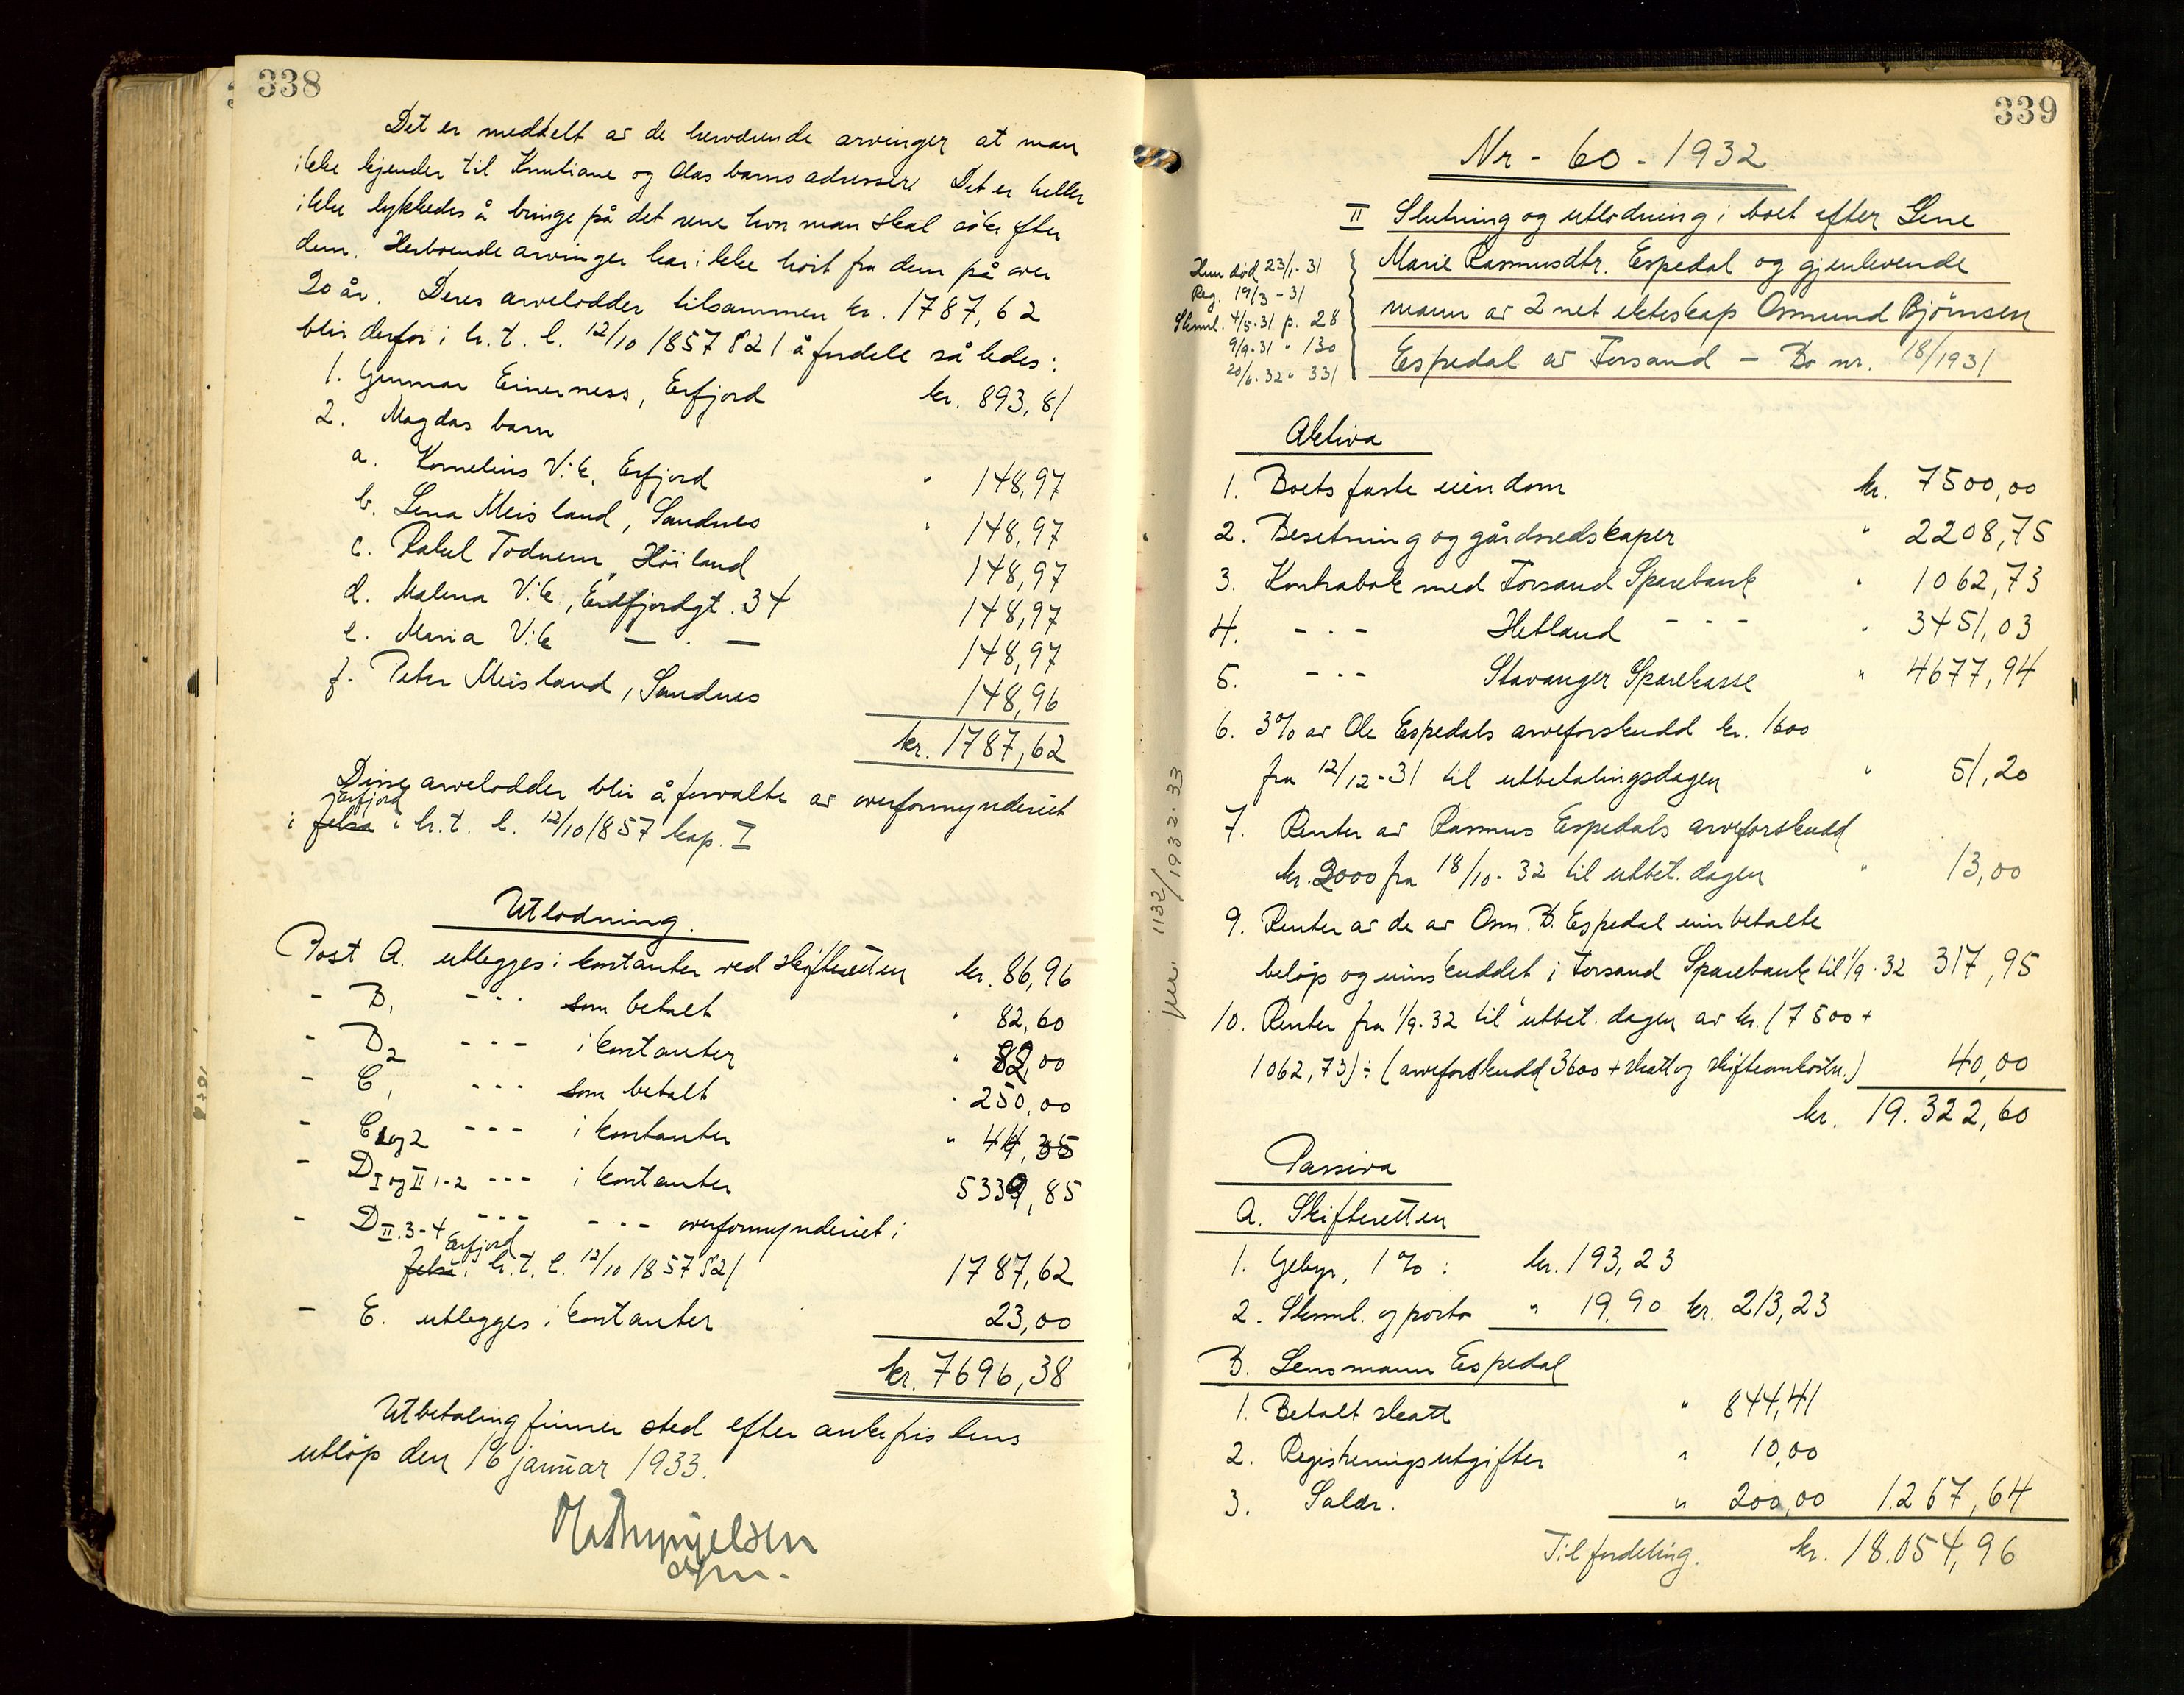 338
Det er meddelt av de herværende arvinger at man
ikke kjender til Knutiane og Olas barns adresser. Det er heller
ikke lykkedes å bringe på det rene hvor man skal söke efter
dem. Herboende arvinger har ikke hört fra dem på over
20 år. Deres arvelodder tilsammen kr. 1787,62
blir derfor i h.t. l. 12/10 1857 § 21 å fordele således:
1. Gunnar Einerness, Erfjord kr. 893,81
2. Magdas barn
a. Kornelius Vik, Erfjord " 148,97
b. Lena Meisland, Sandnes " 148,97
c. Rakel Todnem, Höiland 148,97
d. Malena Vik, Eidfjordgt. 34 148,97
e. Maria Vik — " — 148,97
f. Peter Meisland, Sandnes 148,96
kr. 1787,62
Disse arvelodder blir å forvalte av overformynderiet
Erfjord
i Jelsa i h.t. l. 12/10 1857 kap. I
Utlodning.
Post A. utlegges i kontanter ved skifteretten kr. 86,96
- B1 - - - som betalt " 82,60
- B2 - - - i kontanter " 82,00
- C1 - - - som betalt " 250,00
- C1og2 - - - i kontanter " 44,35
- D I og II 1-2 - - - i kontanter 5339,85
- D II. 3-4 - - - - - - overformynderiet i
Erfjord
Jelsa i h.t. l. 12/10 1857 § 21 1787,62
- E. utlegges i kontanter 23,00
kr. 7696,38
Utbetaling finner sted efter ankefristens
utlöp den 16 januar 1933.
339
Nr - 60 - 1932
II Slutning og utlodning i boet efter Lene
Marie Rasmusdtr. Espedal og gjenlevende
mann av 2net ekteskap Osmund Bjørnsen
Espedal av Forsand – Bo nr. 18/1931
Hun död 23/1-31
Reg. 19/3-31
Skml. 4/5-31 p. 28
9/9-31 " 130
20/6-32 " 331
jnr. 1132/1932-33
Aktiva
1. Boets faste eiendom kr. 7500,00
2. Besetning og gårdsredskaper " 2208,75
3. Kontrabok med Forsand Sparebank " 1062,73
4. - - - Hetland - - - " 3451,03
5. - - - Stavanger Sparekasse " 4677,94
6. 3% av Ole Espedals arveforskudd kr. 1600
fra 12/12-31 til utbetalingsdagen " 51,20
7. Renter av Rasmus Espedals arveforskudd
kr. 2000 fra 18/10-32 til utbet. dagen " 13,00
9. Renter av de av Osm. B. Espedal innbetalte
belöp og innskuddet i Forsand Sparebank til 1/9-32 317,95
10. Renter fra 1/9-32 til utbet. dagen av kr. (7500 +
1062,73) ÷ (arveforskudd 3600 + skatt og skifteomkostn.) 40,00
kr. 19.322,60
Passiva
A. Skifteretten
1. Gebyr, 1% : kr. 193,23
2. Skml. og porto " 19,90 kr. 213,23
B. Lensmann Espedal
1. Betalt skatt " 844,41
2. Registreringsutgifter " 10,00
3. Salær. " 200,00 1.267,64
Til fordeling. kr. 18.054,96